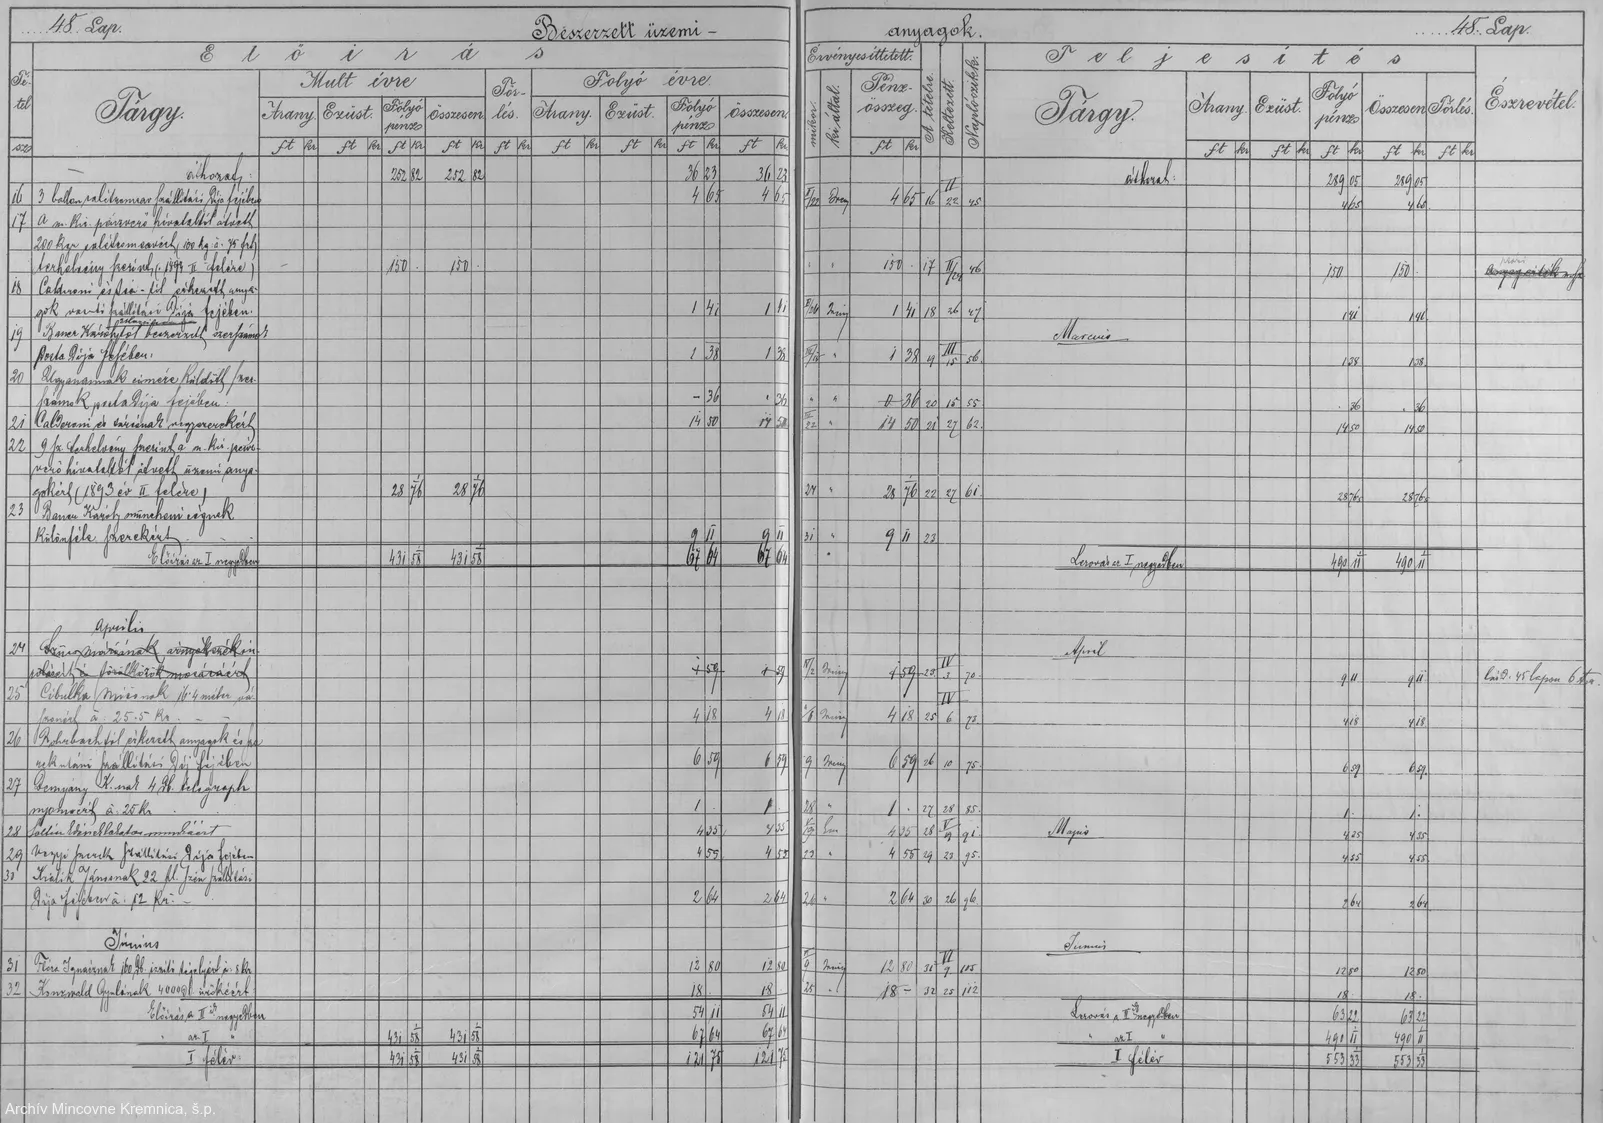 48. Lap.
Beszerzett üzemi –
anyagok.
48. Lap.
Előirás
Érvényesittetett.
Teljesités
Té-
tel
sz
Tárgy.
Mult évre
Tör-
lés.
Folyó évre.
mikor.
ki által.
Pénz-
összeg.
A tételre.
Keltezett.
Naplócikk.
Tárgy.
Arany.
Ezüst.
Folyó
pénz
Összesen.
Törlés.
Észrevétel.
Arany.
Ezüst.
Folyó
pénz
összesen.
Arany.
Ezüst.
Folyó
pénz
összesen.
ft kr ft kr ft kr ft kr ft kr ft kr ft kr ft kr ft kr
ft kr
ft kr ft kr ft kr ft kr ft kr
áthozat: 252 82 252 82 36 23 36 23
áthozat: 289 05 289 05
16 3 ballon salétromsav szállitási Dija fejében 4 65 4 65
4 65 16 II 22 45 4 65 4 65
17 A m. kir. pénzverő hivataltól átvett
200 kgr salétromsavért (100 kg á. 75 frt)
terhelvény szerint (1893 II felére) 150 . 150 .
150 . 17 II/24 46 150 150
18 Calderoni és tsa-tól érkezett anya-
gok vasuti szállitási Dija fejében. 1 41 1 41
1 41 18 26 47 1 41 1 41
19 Bauer Károlytól beszerzett szerszámok
Posta Dija fejében. 1 38 1 38
1 38 19 III 15 56
Marczius
1 38 1 38
20 Ugyanannak cimére küldött szer-
számok posta Dija fejében. – 36 " 36
0 36 20 15 55 36 36
21 Calderoni és társának vegyszerekért 14 50 14 50
14 50 21 27 62. 14 50 14 50
22 9 sz. terhelvény szerint a m. kir. pénz-
verő hivataltól átvett üzemi anya-
gokért (1893 év II felére) 28 76 28 76
24 " 28 76 22 27 61 28 76 28 76
23 Bauer Károly müncheni cégnek
különféle szerekért 9 11 9 11
31 " 9 11 23
Előirás az I negyedben 431 58 431 58 67 64 67 64
Lerovás az I negyedben 490 11 490 11
Április
April
24
4 59 4 59
4 59 23 IV 3 70. 9 11 9 11
25 Cibulka Mózsnak 16.4 méter
á. 25.5 Kr. 4 18 4 18
4 18 25 IV 6 73 4 18 4 18
26 Rohrbachtól érkezett anyagok
utáni szállitási Dij fejében 6 59 6 59
9 6 59 26 10 75. 6 59 6 59
27 Csemyány K.nak 4 Db. telegraph
nyomóért á. 25 kr 1 . 1 .
28 " 1 . 27 28 85. 1. 1.
28 munkáért 4 35 4 35
4 35 28 V 19 91
Majus
4 35 4 35
29 Vegyi szerek szállitási Dija fejében 4 55 4 55
23 " 4 55 29 23 95. 4 55 4 55
30 Králik Jánosnak 22 szén szállitási
Dija fejében á. 12 Kr. – 2 64 2 64
26 " 2 64 30 26 96 2 64 2 64
Június
Junius
31 Flóra Ignácznak 160 Db. tégelyért á. 8 Kr 12 80 12 80
12 80 31 VI 9 105 12 80 12 80
32 Gyulának 4000 18 . 18
25 " 18 – 32 25 112 18 . 18 .
Előirás a II ik negyedben 54 11 54 11
Lerovás a II ik negyedben 63 22 63 22
" az I " 431 58 431 58 67 64 67 64
" az I " 490 11 490 11
I félév 431 58 431 58 121 75 121 75
I félév 553 33 553 33
Archív Mincovne Kremnica, š.p.